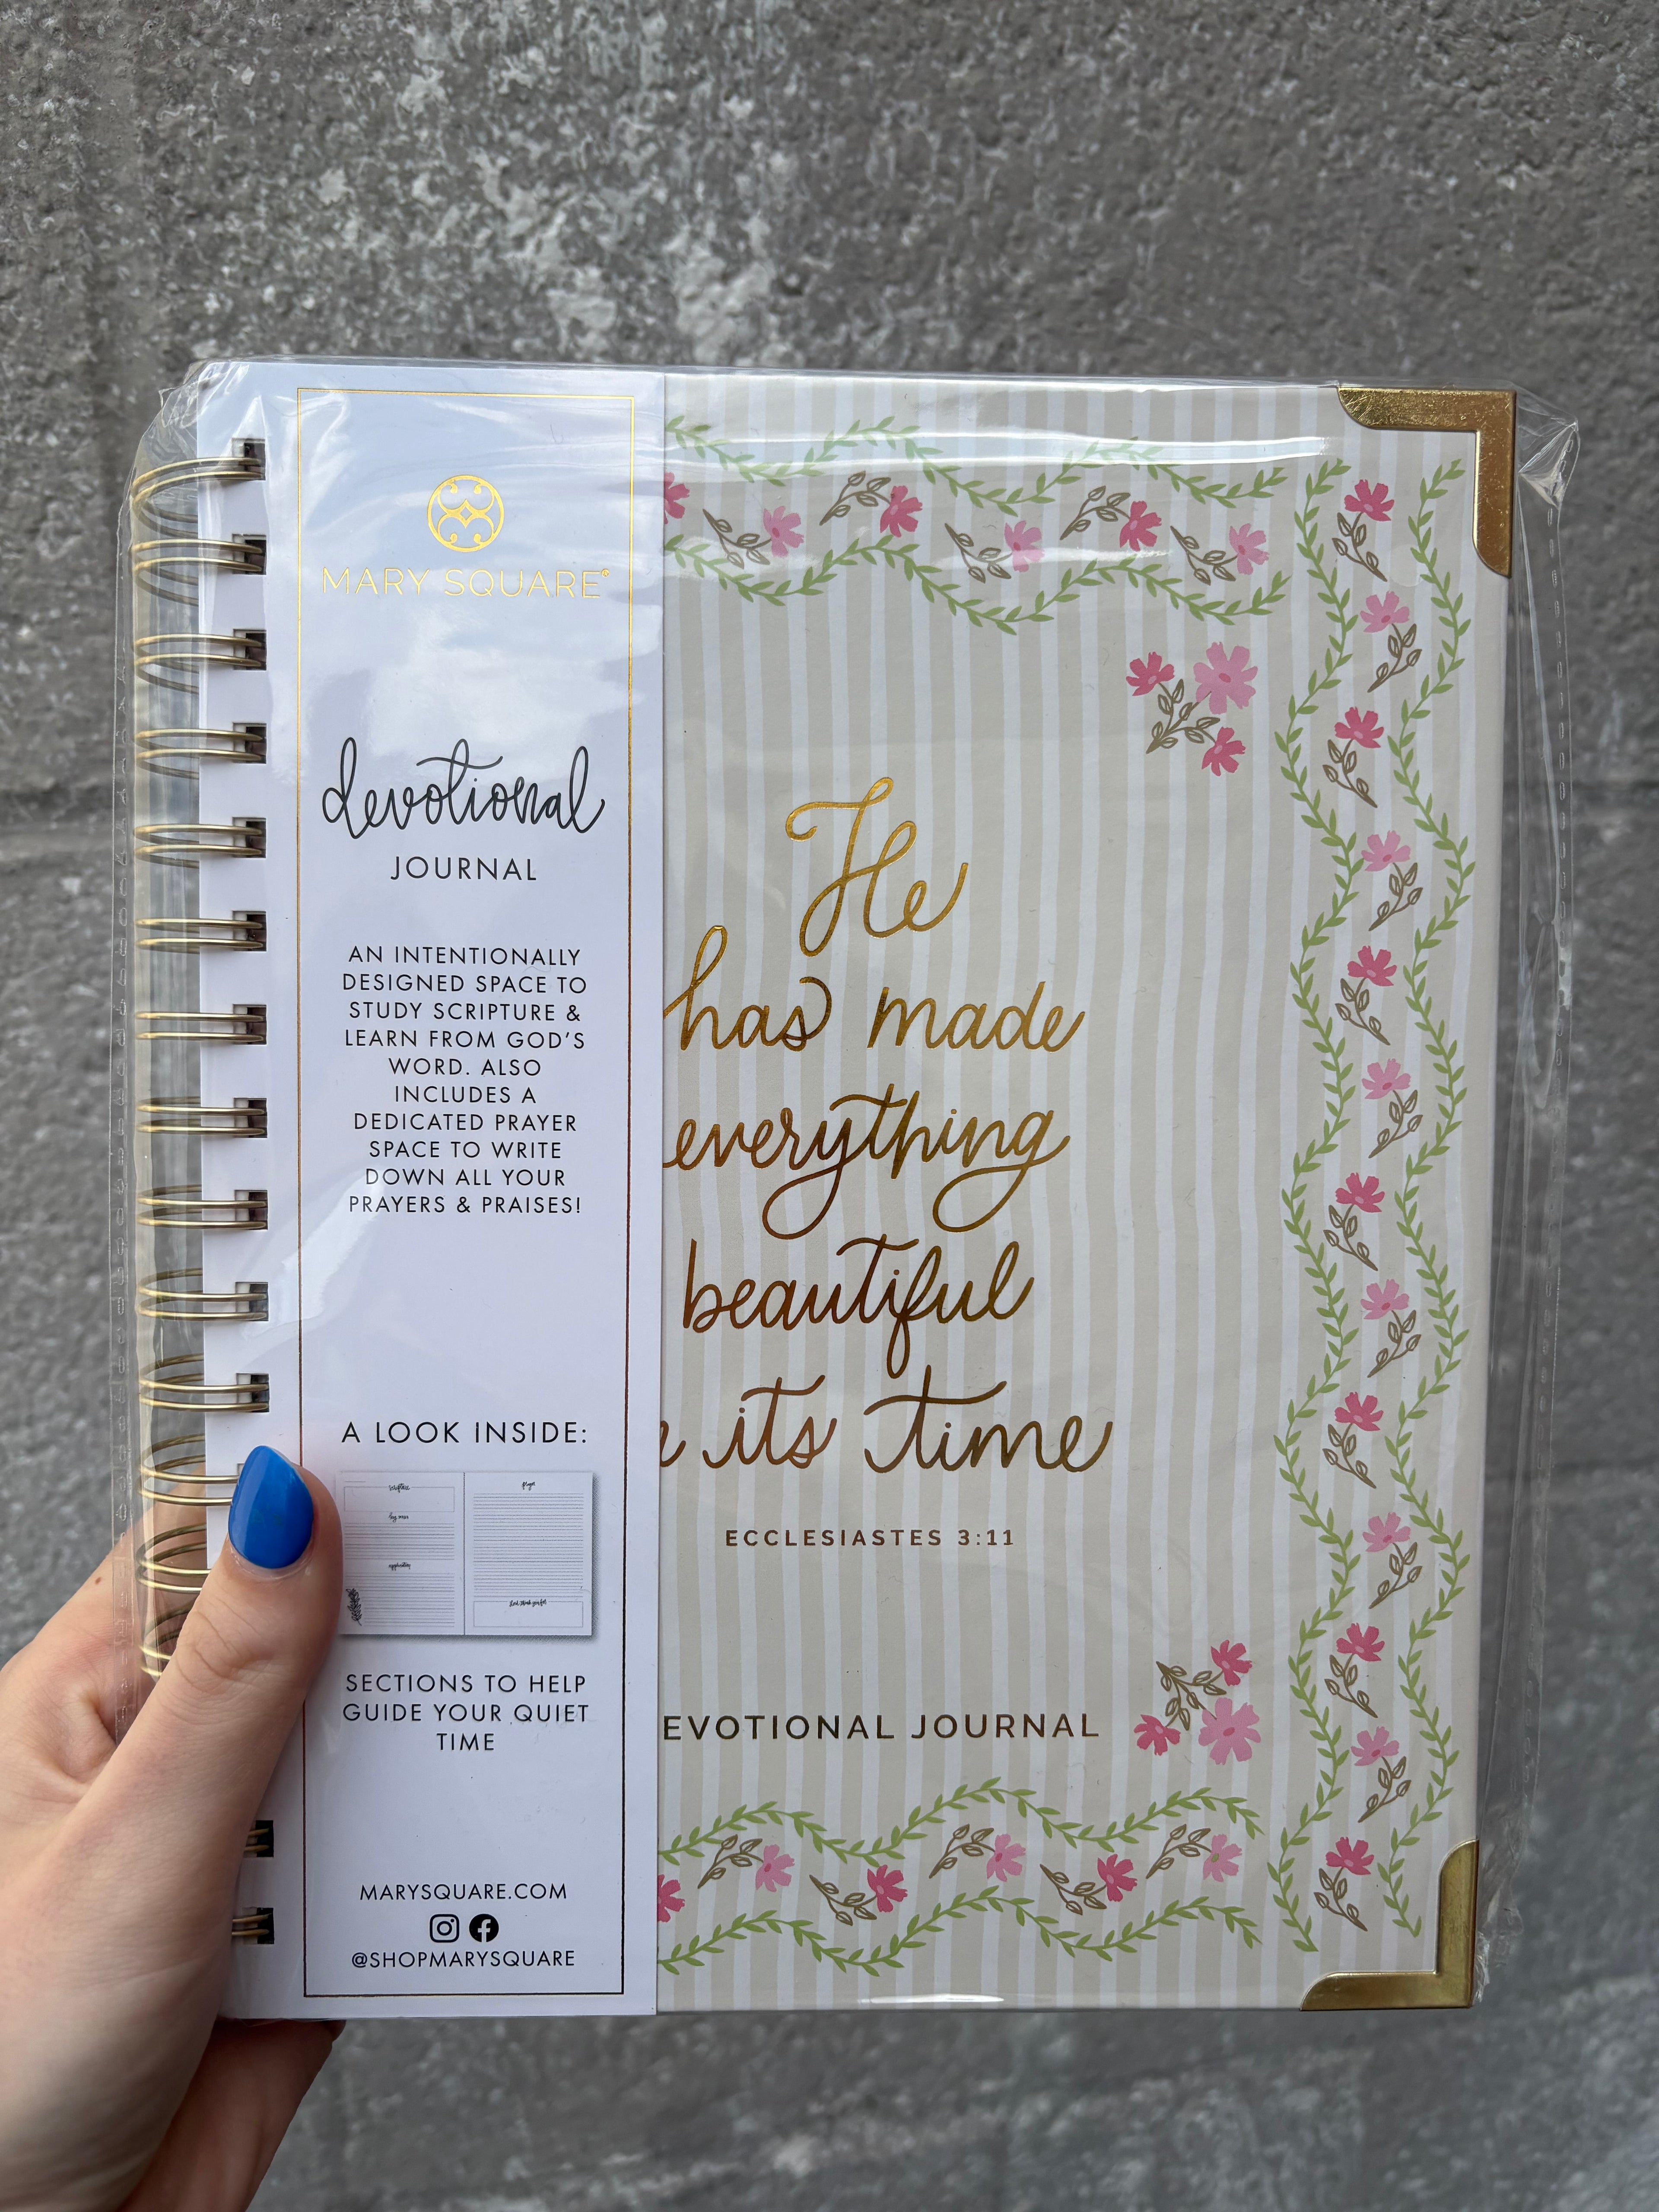 MARY SQUARE
devotional
JOURNAL
AN INTENTIONALLY
DESIGNED SPACE TO
STUDY SCRIPTURE &
LEARN FROM GOD'S
WORD. ALSO
INCLUDES A
DEDICATED PRAYER
SPACE TO WRITE
DOWN ALL YOUR
PRAYERS & PRAISES!
A LOOK INSIDE:
scripture
key verse
application
prayer
Lord, thank you for:
SECTIONS TO HELP
GUIDE YOUR QUIET
TIME
MARYSQUARE.COM
@SHOPMARYSQUARE
He
has made
everything
beautiful
its time
ECCLESIASTES 3:11
EVOTIONAL JOURNAL